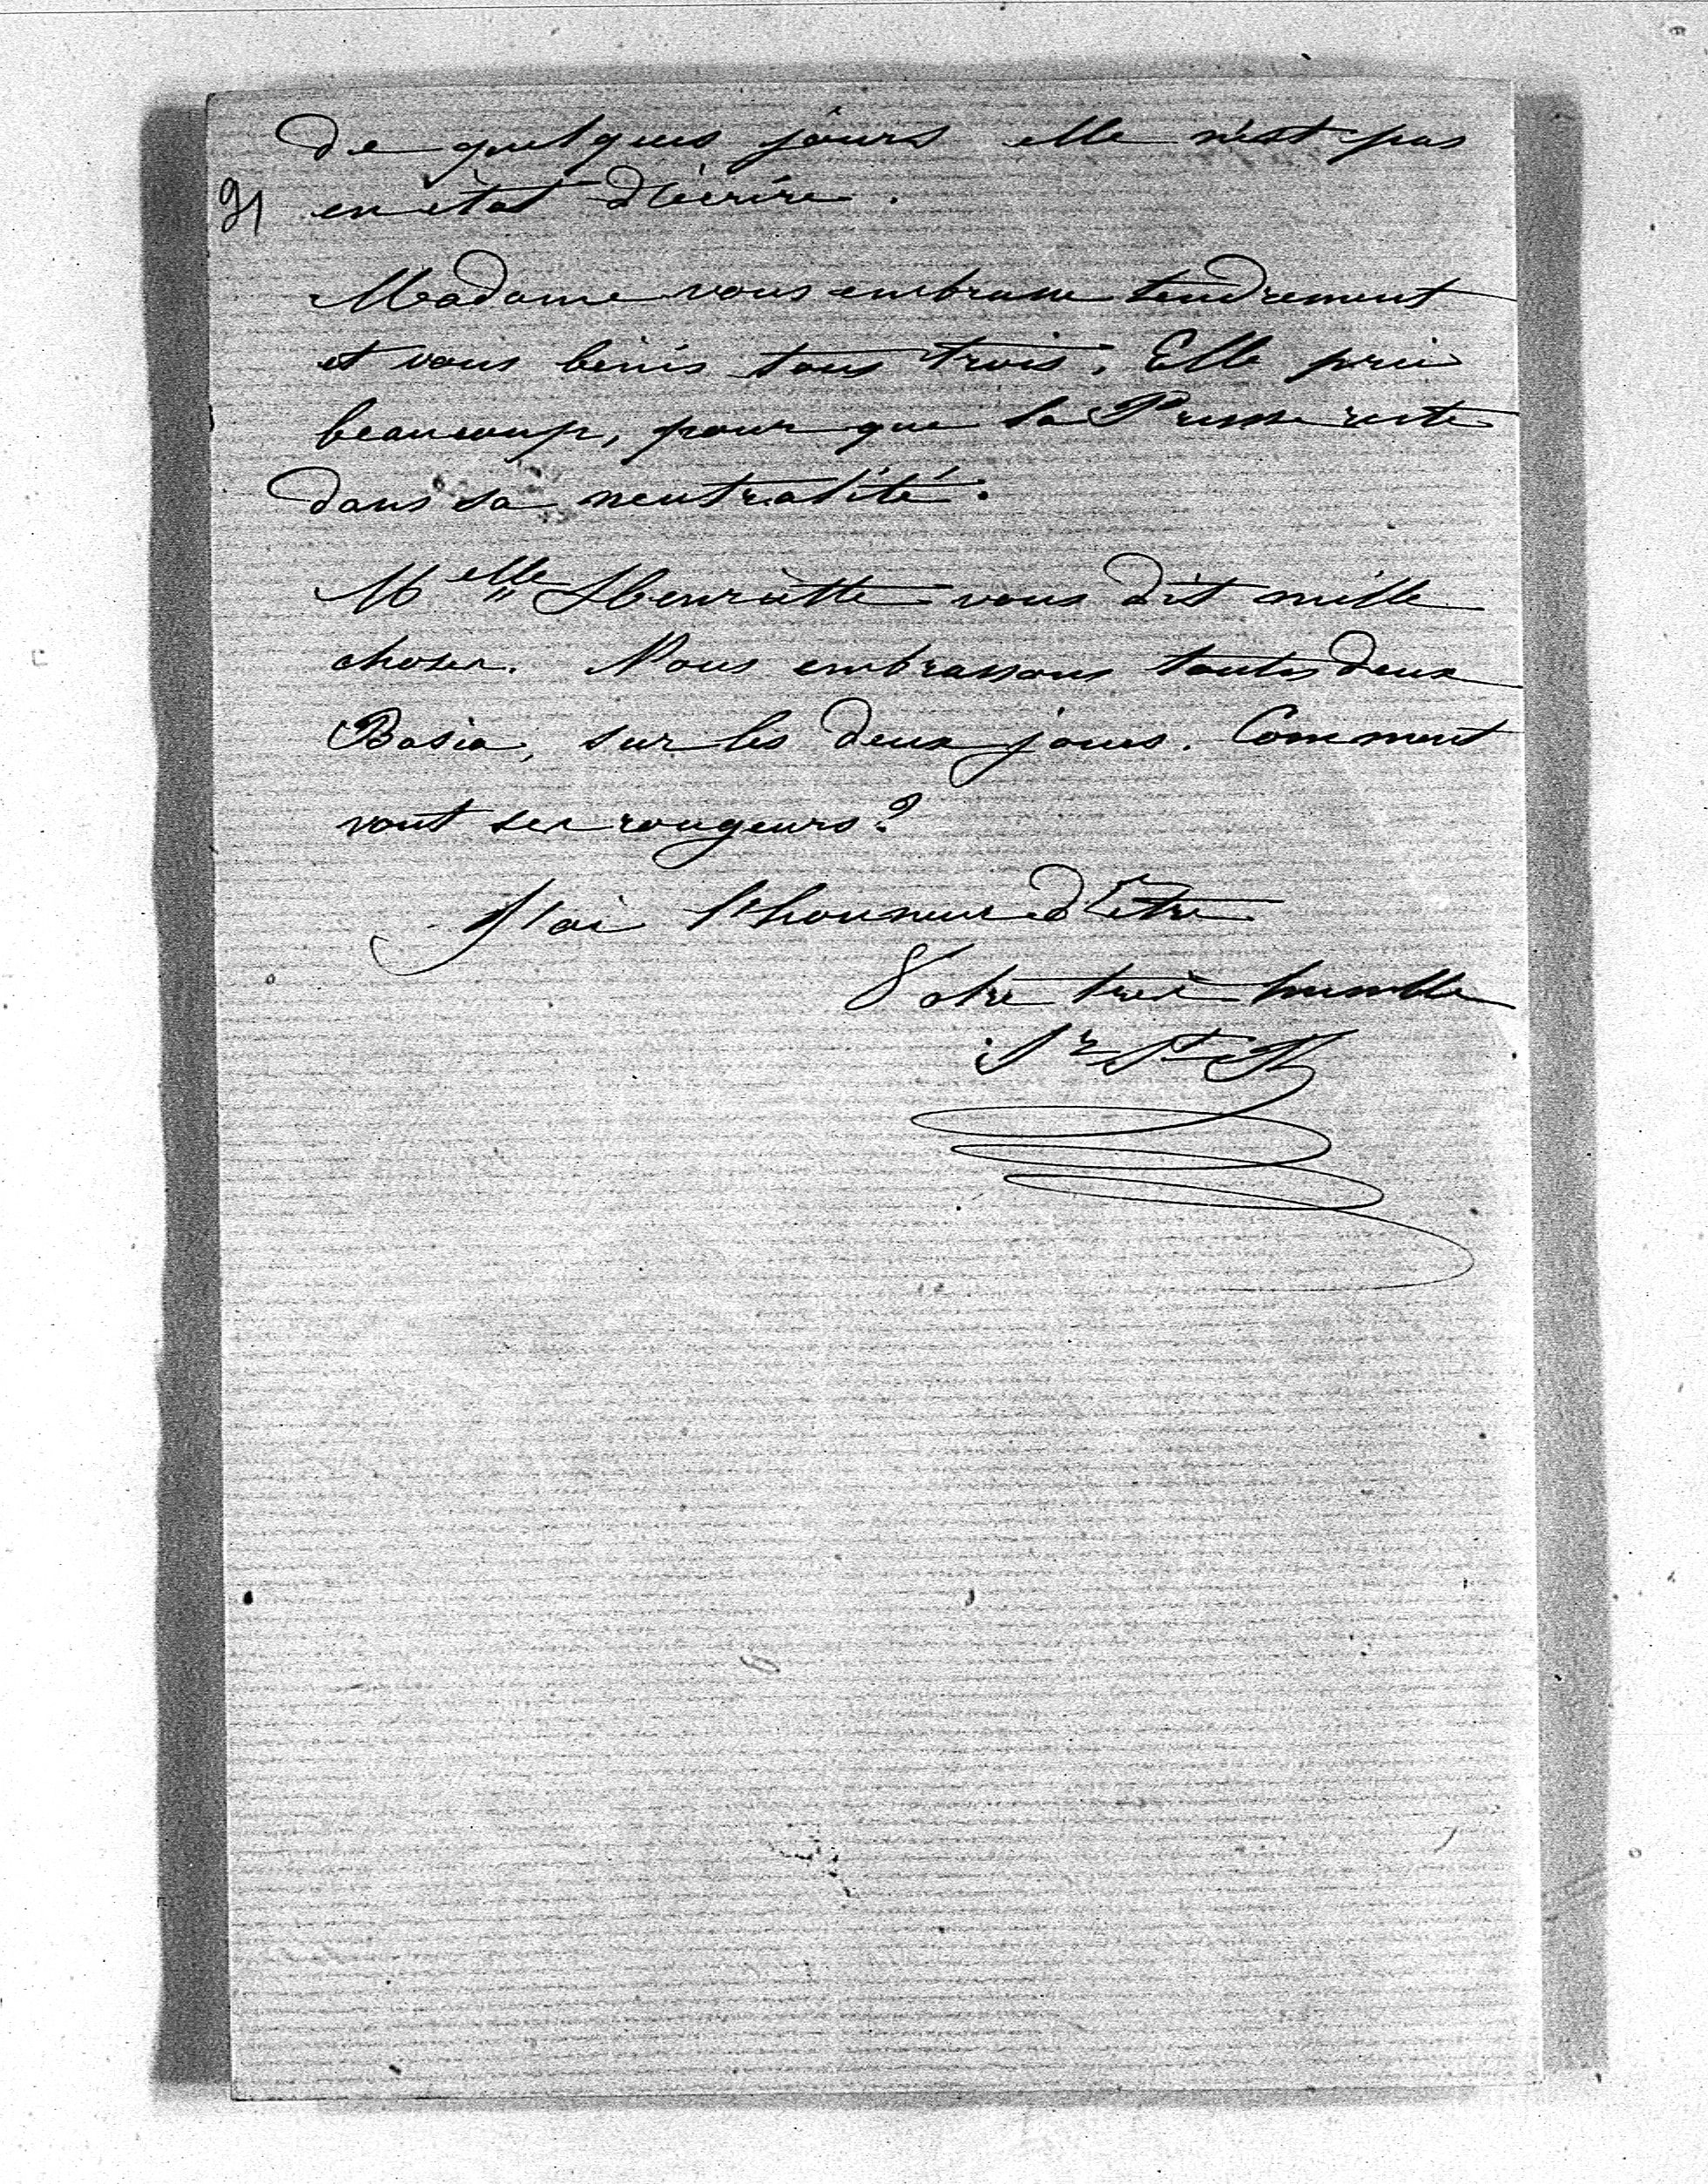 de quelques jours elle n'est pas
91 en état d'écrire.
Madame vous embrasse tendrement
et vous bénis tous trois. Elle prie
beaucoup, pour que la Prusse reste
dans sa neutralité.
Melle Henriette vous dit mille
choses. Nous embrassons toutes deux
Basia, sur les deux joues. Comment
vont ses rougeurs?
J'ai l'honneur d'être
Votre très humble